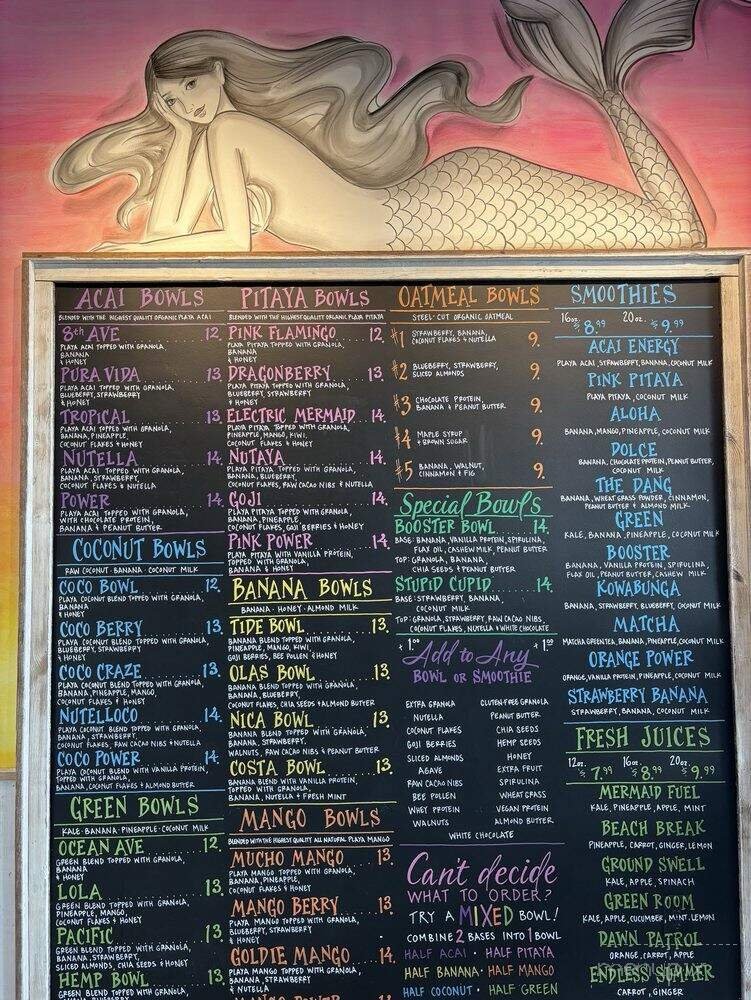 ACAI BOWLS
BLENDED WITH THE HIGHEST QUALITY ORGANIC PLAYA ACAI
8th AVE 12.
PLAYA ACAI TOPPED WITH GRANOLA,
BANANA
& HONEY
PURA VIDA 13.
PLAYA ACAI TOPPED WITH GRANOLA,
BLUEBERRY, STRAWBERRY
& HONEY
TROPICAL 13.
PLAYA ACAI TOPPED WITH GRANOLA,
BANANA, PINEAPPLE,
COCONUT FLAKES & HONEY
NUTELLA 14.
PLAYA ACAI TOPPED WITH GRANOLA,
BANANA, STRAWBERRY,
COCONUT FLAKES & NUTELLA
POWER 14.
PLAYA ACAI TOPPED WITH GRANOLA,
WITH CHOCOLATE PROTEIN,
BANANA & PEANUT BUTTER
COCONUT BOWLS
RAW COCONUT · BANANA · COCONUT MILK
COCO BOWL 12.
PLAYA COCONUT BLEND TOPPED WITH GRANOLA,
BANANA
& HONEY
COCO BERRY 13.
PLAYA COCONUT BLEND TOPPED WITH GRANOLA,
BLUEBERRY, STRAWBERRY
& HONEY
COCO CRAZE 13.
PLAYA COCONUT BLEND TOPPED WITH GRANOLA,
BANANA, PINEAPPLE, MANGO,
COCONUT FLAKES & HONEY
NUTELLOCO 14.
PLAYA COCONUT BLEND TOPPED WITH GRANOLA,
BANANA, STRAWBERRY,
COCONUT FLAKES, RAW CACAO NIBS & NUTELLA
COCO POWER 14.
PLAYA COCONUT BLEND WITH VANILLA PROTEIN,
TOPPED WITH GRANOLA,
BANANA, COCONUT FLAKES & ALMOND BUTTER
GREEN BOWLS
KALE · BANANA · PINEAPPLE · COCONUT MILK
OCEAN AVE 12.
GREEN BLEND TOPPED WITH GRANOLA,
BANANA
& HONEY
LOLA 13.
GREEN BLEND TOPPED WITH GRANOLA,
PINEAPPLE, MANGO,
COCONUT FLAKES & HONEY
PACIFIC 13.
GREEN BLEND TOPPED WITH GRANOLA,
BANANA, STRAWBERRY,
SLICED ALMONDS, CHIA SEEDS & HONEY
HEMP BOWL 13.
GREEN BLEND TOPPED WITH GRANOLA,
BANANA, BLUEBERRY,
PITAYA BOWLS
BLENDED WITH THE HIGHEST QUALITY ORGANIC PLAYA PITAYA
PINK FLAMINGO 12.
PLAYA PITAYA TOPPED WITH GRANOLA,
BANANA
& HONEY
DRAGONBERRY 13.
PLAYA PITAYA TOPPED WITH GRANOLA,
BLUEBERRY, STRAWBERRY
& HONEY
ELECTRIC MERMAID 14.
PLAYA PITAYA TOPPED WITH GRANOLA,
PINEAPPLE, MANGO, KIWI,
COCONUT FLAKES & HONEY
NUTAYA 14.
PLAYA PITAYA TOPPED WITH GRANOLA,
BANANA, BLUEBERRY,
COCONUT FLAKES, RAW CACAO NIBS & NUTELLA
GOJI 14.
PLAYA PITAYA TOPPED WITH GRANOLA,
BANANA, PINEAPPLE,
COCONUT FLAKES, GOJI BERRIES & HONEY
PINK POWER 14.
PLAYA PITAYA WITH VANILLA PROTEIN,
TOPPED WITH GRANOLA,
BANANA & HONEY
BANANA BOWLS
BANANA · HONEY · ALMOND MILK
TIDE BOWL 13.
BANANA BLEND TOPPED WITH GRANOLA,
BANANA, MANGO, KIWI,
GOJI BERRIES, BEE POLLEN & HONEY
OLAS BOWL 13.
BANANA BLEND TOPPED WITH GRANOLA,
BANANA, BLUEBERRY,
COCONUT FLAKES, CHIA SEEDS & ALMOND BUTTER
NICA BOWL 13.
BANANA BLEND TOPPED WITH GRANOLA,
BANANA, STRAWBERRY,
WALNUTS, RAW CACAO NIBS & PEANUT BUTTER
COSTA BOWL 13.
BANANA BLEND WITH VANILLA PROTEIN,
TOPPED WITH GRANOLA,
BANANA, NUTELLA & FRESH MINT
MANGO BOWLS
BLENDED WITH THE HIGHEST QUALITY ALL NATURAL PLAYA MANGO
MUCHO MANGO 13.
PLAYA MANGO TOPPED WITH GRANOLA,
BANANA, PINEAPPLE,
COCONUT FLAKES & HONEY
MANGO BERRY 13.
PLAYA MANGO TOPPED WITH GRANOLA,
BLUEBERRY, STRAWBERRY
& HONEY
GOLDIE MANGO 14.
PLAYA MANGO TOPPED WITH GRANOLA,
BANANA, STRAWBERRY,
& NUTELLA
MANGO POWER
OATMEAL BOWLS
STEEL-CUT ORGANIC OATMEAL
#1 STRAWBERRY, BANANA, 9.
COCONUT FLAKES & NUTELLA
#2 BLUEBERRY, STRAWBERRY, 9.
SLICED ALMONDS
#3 CHOCOLATE PROTEIN, 9.
BANANA & PEANUT BUTTER
#4 MAPLE SYRUP 9.
& BROWN SUGAR
#5 BANANA, WALNUT, 9.
CINNAMON & FIG
Special Bowls
BOOSTER BOWL 14.
BASE: BANANA, VANILLA PROTEIN, SPIRULINA,
FLAX OIL, CASHEW MILK, PEANUT BUTTER
TOP: GRANOLA, BANANA,
CHIA SEEDS & PEANUT BUTTER
STUPID CUPID 14.
BASE: STRAWBERRY, BANANA,
COCONUT MILK
TOP: GRANOLA, STRAWBERRY, RAW CACAO NIBS,
COCONUT FLAKES, NUTELLA & WHITE CHOCOLATE
+1.00 Add to Any +1.00
BOWL OR SMOOTHIE
EXTRA GRANOLA GLUTEN-FREE GRANOLA
NUTELLA PEANUT BUTTER
COCONUT FLAKES CHIA SEEDS
GOJI BERRIES HEMP SEEDS
SLICED ALMONDS HONEY
AGAVE EXTRA FRUIT
RAW CACAO NIBS SPIRULINA
BEE POLLEN WHEATGRASS
WHEY PROTEIN VEGAN PROTEIN
WALNUTS ALMOND BUTTER
WHITE CHOCOLATE
Can't decide
WHAT TO ORDER?
TRY A MIXED BOWL!
COMBINE 2 BASES INTO 1 BOWL
HALF ACAI · HALF PITAYA
HALF BANANA · HALF MANGO
HALF COCONUT · HALF GREEN
SMOOTHIES
16oz. $8.99 20oz. $9.99
ACAI ENERGY
PLAYA ACAI, STRAWBERRY, BANANA, COCONUT MILK
PINK PITAYA
PLAYA PITAYA, COCONUT MILK
ALOHA
BANANA, MANGO, PINEAPPLE, COCONUT MILK
DOLCE
BANANA, CHOCOLATE PROTEIN, PEANUT BUTTER,
COCONUT MILK
THE DANG
BANANA, WHEAT GRASS POWDER, CINNAMON,
PEANUT BUTTER & ALMOND MILK
GREEN
KALE, BANANA, PINEAPPLE, COCONUT MILK
BOOSTER
BANANA, VANILLA PROTEIN, SPIRULINA,
FLAX OIL, PEANUT BUTTER, CASHEW MILK
KOWABUNGA
BANANA, STRAWBERRY, BLUEBERRY, COCONUT MILK
MATCHA
MATCHA GREEN TEA, BANANA, PINEAPPLE, COCONUT MILK
ORANGE POWER
ORANGE, VANILLA PROTEIN, PINEAPPLE, COCONUT MILK
STRAWBERRY BANANA
STRAWBERRY, BANANA, COCONUT MILK
FRESH JUICES
12oz. $7.99 16oz. $8.99 20oz. $9.99
MERMAID FUEL
KALE, PINEAPPLE, APPLE, MINT
BEACH BREAK
PINEAPPLE, CARROT, GINGER, LEMON
GROUND SWELL
KALE, APPLE, SPINACH
GREEN ROOM
KALE, APPLE, CUCUMBER, MINT, LEMON
DAWN PATROL
ORANGE, CARROT, APPLE
ENDLESS SUMMER
CARROT, GINGER